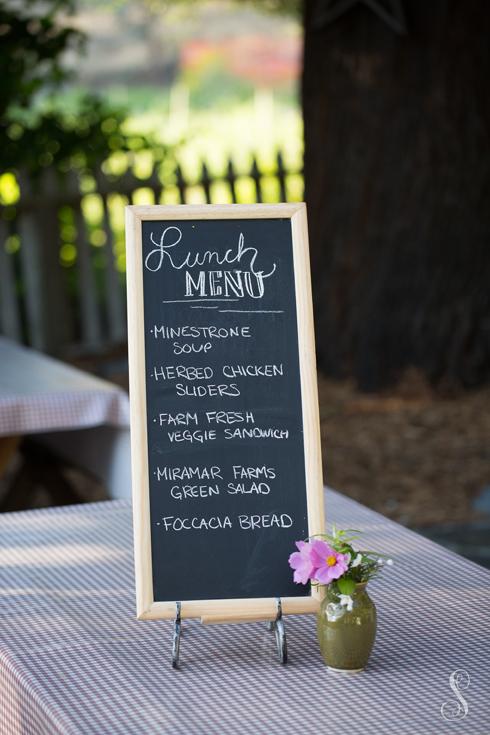 Lunch
MENU
·MINESTRONE
SOUP
·HERBED CHICKEN
SLIDERS
·FARM FRESH
VEGGIE SANDWICH
·MIRAMAR FARMS
GREEN SALAD
·FOCCACIA BREAD
S